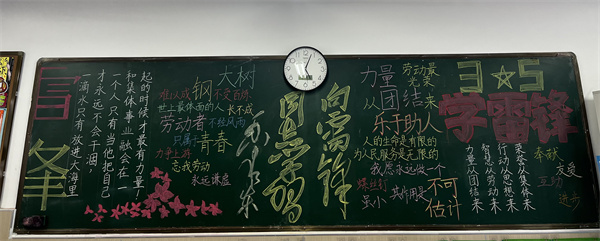 雷
锋
一滴水只有放进大海里
才永远不会干涸，
一个人只有当他把自己
和集体事业融合在一
起的时候才最有力量
钢
大树
难以成
不变百炼
世上最体面的人
长不成
劳动者
不经风雨
只属于
青春
力争上游
忘我劳动
永远谦虚
向雷锋
同志学习
力量
劳动最
光荣
从团结来
乐于助人
人的生命是有限的
为人民服务是无限的
我愿永远做一个
螺丝钉
虽小
其作用是
不可
估计
3★5
学雷锋
荣誉从集体来
行动从思想来
智慧从劳动来
力量从团结来
奉献
友爱
互助
进步